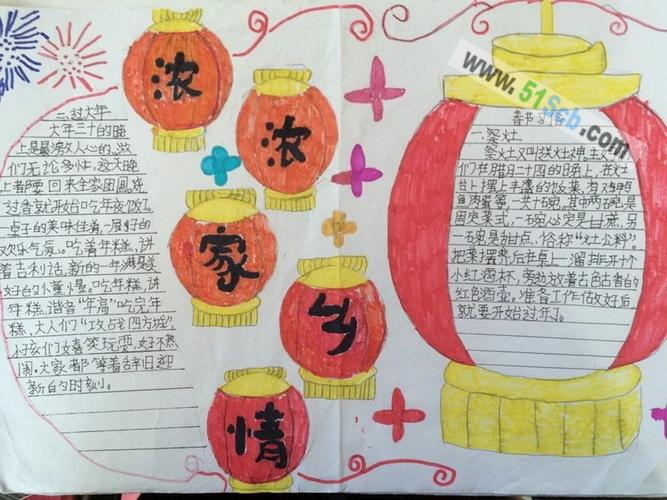 浓
浓
家
乡
情
二、过大年
大年三十的晚
上是最激动人心的,放
们无论多忙,这天晚
上都要回来全家团圆,烧
过香就开始吃年夜饭了。
桌子的美味佳肴,一屋子的
欢乐气氛。吃着年糕,讲
着吉利话,新的一年满是美
好的小童景。吃年糕,讲
年糕,谐音“年高”吃完年
糕,大人们“攻占四方城”,
小孩们嬉笑玩耍,好不热
闹。大家都等着辞旧迎
新的时刻。
www.51Scb.com
春节习俗
一、祭灶
祭灶又叫送灶神。主
们在腊月二十四的日务上,在灶
台上摆上丰盛的饭菜。有鸡鸭
鱼肉蛋等,一共十碗,其中两碗是
固定菜式,一碗必定是甘蔗,另
一碗是甜点,俗称“灶公料”。
把菜摆齐后在桌上一溜排开十个
小红酒杯,旁边放着古色古香的
红色酒壶。准备工作做好后,
就要开始过年了。